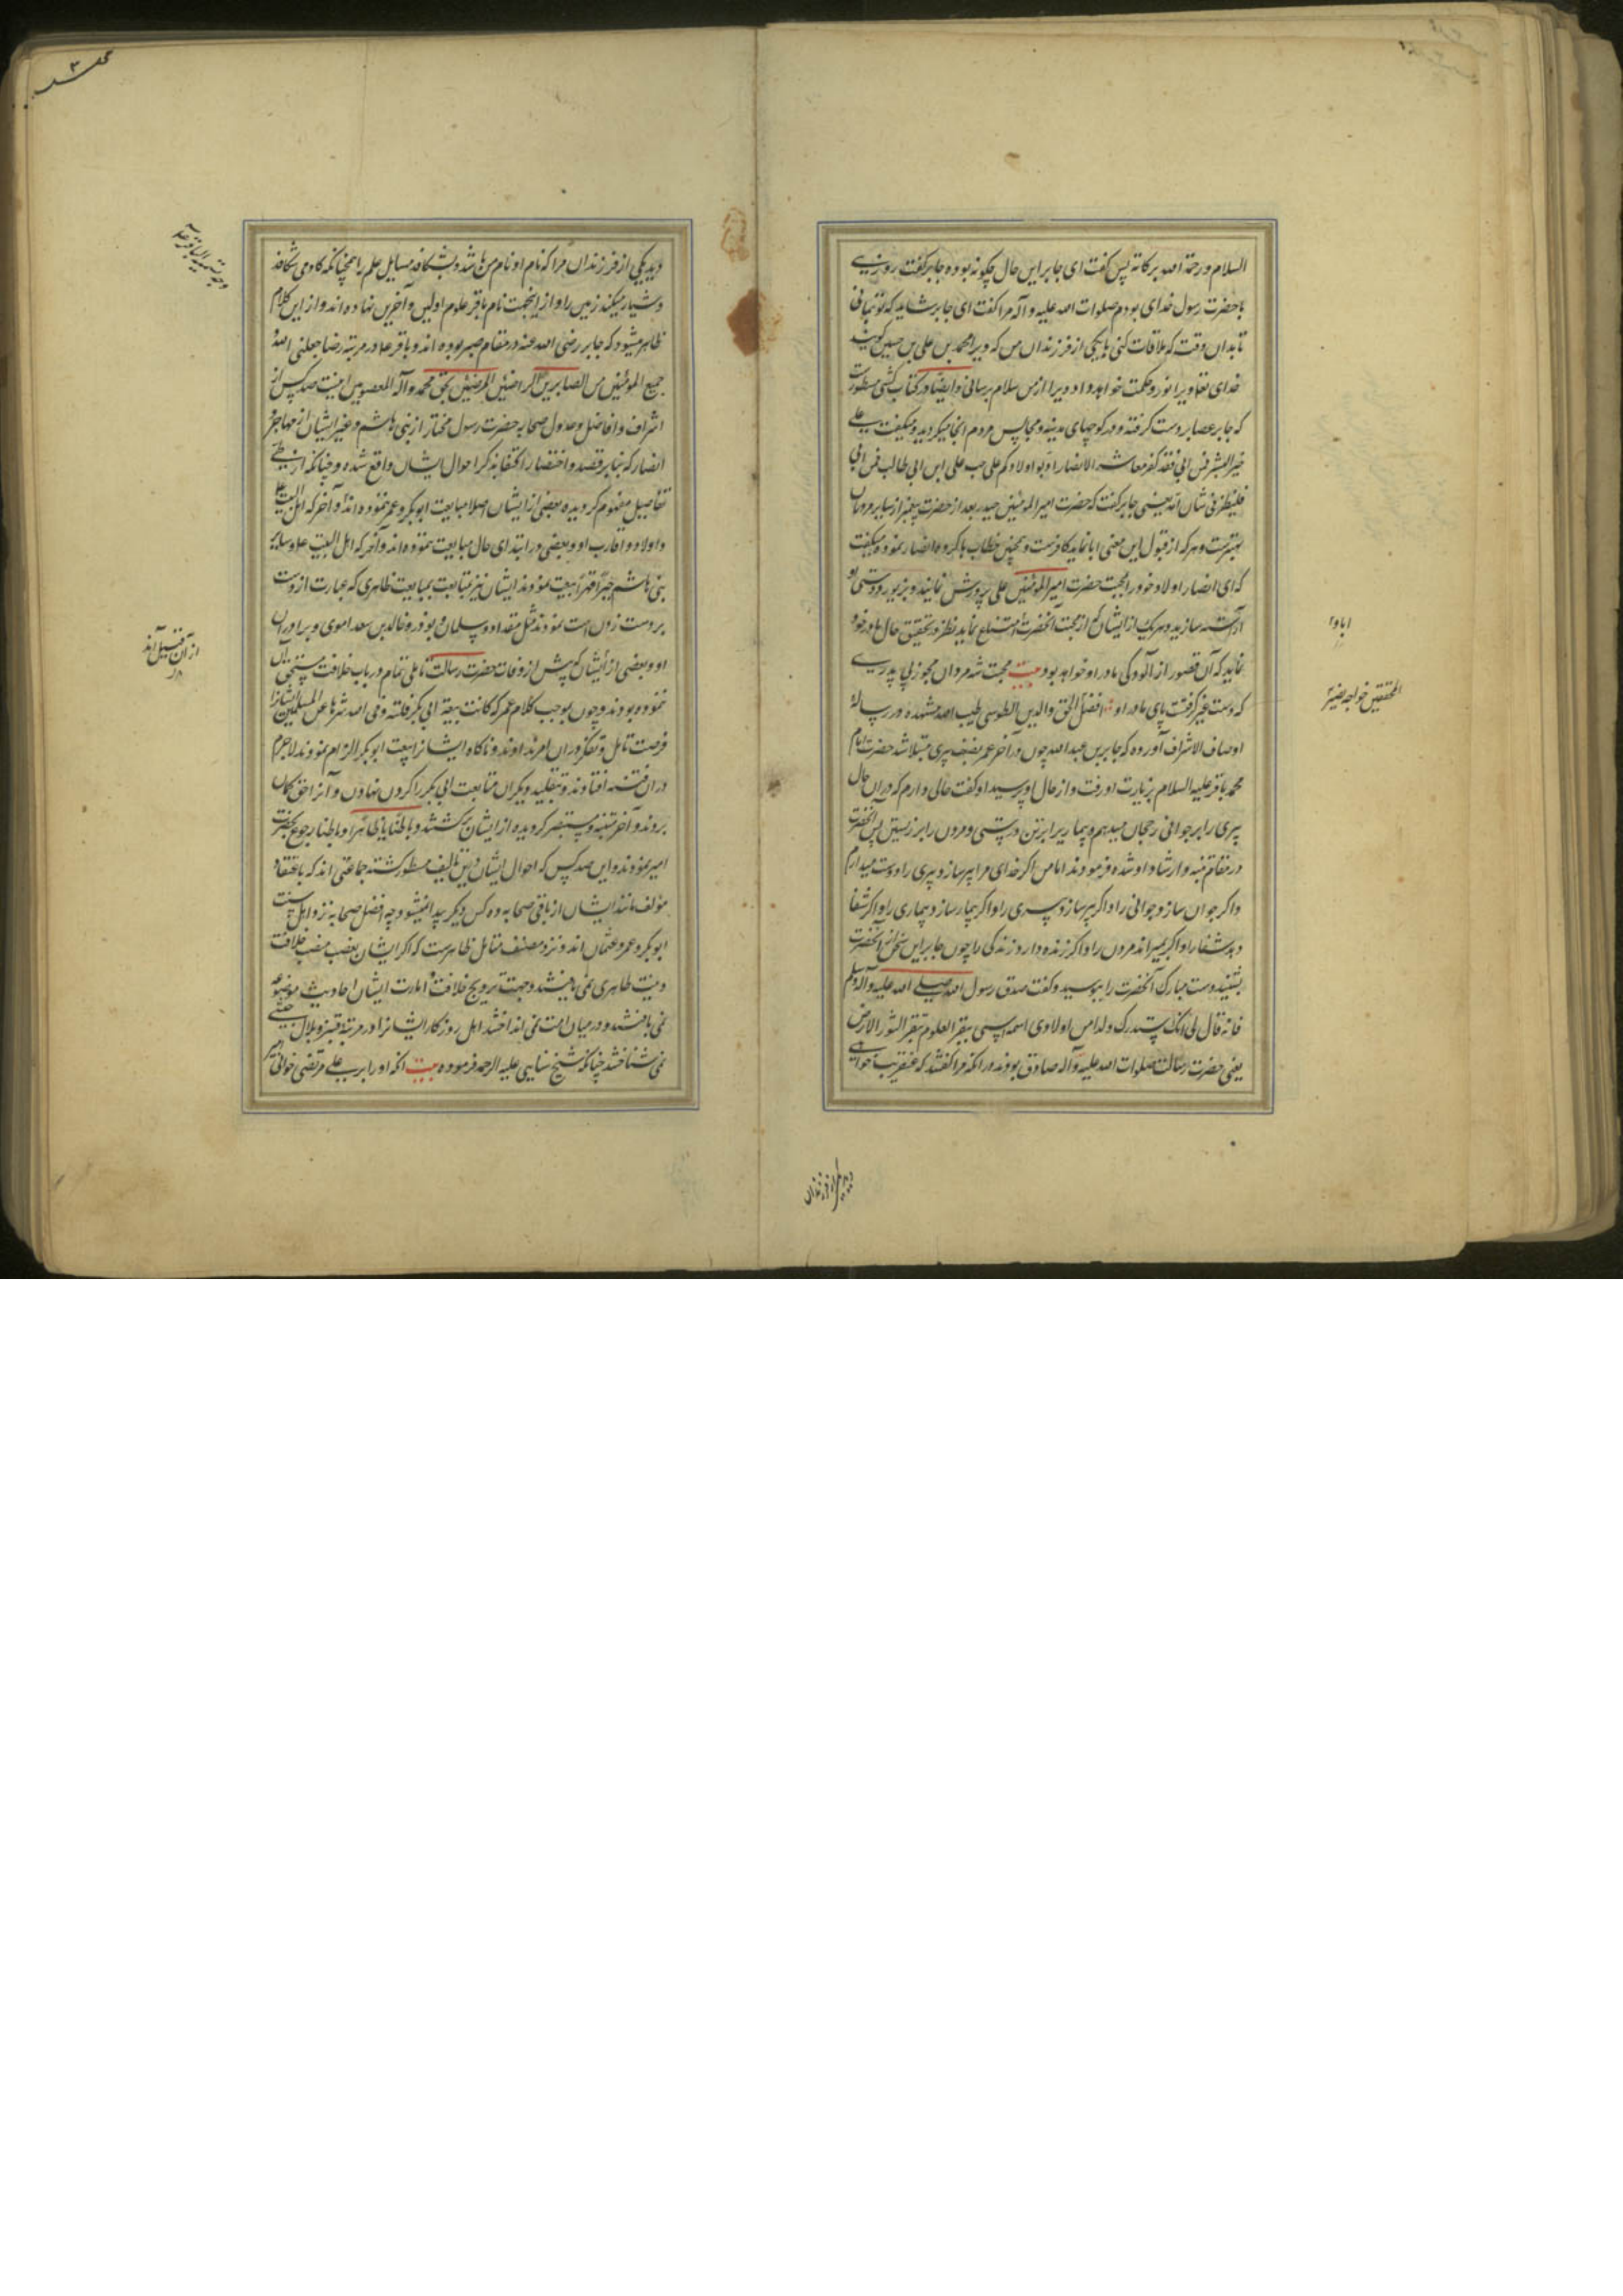 السلام ورحمة الله بركاته پس گفت ای جابر این حال چگونه بوده جابر گفت روزی
با حضرت رسول خدای بودم صلوات الله علیه وآله مرا گفت ای جابر شاید که تو بمانی
تا بدان وقت که ملاقات کنی با یکی از فرزندان من که ویرا محمد بن علی بن حسین گویند
خدای تعا ویرا نور و حکمت خواهد داد ویرا از من سلام برسانی وایضا در کتاب کشی مسطورست
که جابر عصا بر دست گرفته و در کوچهای مدینه و مجالس مردم انجا میگردید و میگفت علی
خیر البشر فمن ابی فقد کفر معاشر الانصار ادبوا اولادکم علی حب علی ابن ابی طالب فمن ابی
فلینظر فی شان امه یعنی جابر گفت که حضرت امیر المؤمنین حیدر بعد از حضرت پیغمبر از سایر مردمان
بهترست و هر که از قبول این معنی ابا نماید کافرست و همچنین خطاب با گروه انصار نموده میگفت
که ای انصار اولاد خود را بمحبت حضرت امیر المؤمنین علی پرورش نمایند و بزیور دوستی او
آراسته سازید و هر یک از ایشان که از محبت آنحضرت امتناع نماید نظر در تحقیق حال مادر خود
نماید که آن قصور از آلودگی مادر او خواهد بود بیت محبت شه مردان مجو ز بی پدری
که دست غیر گرفتست پای مادر او افضل الحق والدین الطوسی طیب الله مشهده در رساله
اوصاف الاشراف آورده که جابر بن عبد الله چون در آخر عمر بضعف پیری مبتلا شد حضرت امام
محمد باقر علیه السلام بزیارت او رفت و از حال او پرسید او گفت حالی دارم که دران حال
پیری را بر جوانی رجحان میدهم و بیماری را بر تن درستی و مردن را بر زیستن پس آنحضرت
در مقام تنبیه و ارشاد او شده فرمودند اما من اگر خدای مرا پیر سازد پیری را دوست میدارم
واگر جوان سازد جوانی را واگر پیر سازد پیری را واگر بیمار سازد بیماری را واگر شفا
دهد شفا را واگر بمیراند مردن را واگر زنده دارد زندگی را چون جابر این سخن از آنحضرت
بشنید دست مبارک آنحضرت را ببوسید و گفت صدق رسول الله صلی الله علیه وآله وسلم
فانه قال لی انک ستدرک ولدا من اولادی اسمه اسمی یبقر العلوم کما یبقر الثور الارض
یعنی حضرت رسالت صلوات الله علیه وآله صادق بودند در انکه مرا گفتند که عنقریب خواهی
دید یکی از فرزندان
المحققین خواجه نصیر
دید یکی از فرزندان مرا که نام او نام من باشد و بشکافد مسایل علم را همچنانکه گاو می شکافد
و شیار میکند زمین را و از اینجهت نام باقر علوم اولین و آخرین نهاده اند و از این کلام
ظاهر میشود که جابر رضی الله عنه در مقام صبر بوده اند و باقر ع در مرتبه رضا جعلنی الله و
جمیع المؤمنین من الصابرین الراضین المرضیین بحق محمد وآله المعصومین اینست صد کس از
اشراف و افاضل و عدول صحابه حضرت رسول مختار از بنی هاشم و غیر ایشان از مهاجر و
انصار که بنابر قصد و اختصار اکتفا بذکر احوال ایشان واقع شده و چنانکه از طی
تفاصیل مفهوم گردیده بعضی از ایشان اصلا مبایعت ابوبکر و عمر ننموده اند و آخر که اهل البیت ع
و اولاد و اقارب او و بعضی در ابتدای حال مبایعت ننموده اند و آخر که اهل البیت ع و سایر
بنی هاشم جبرا قهرا بیعت نمودند ایشان نیز بمتابعت بمبایعت ظاهری که عبارت از دست
بر دست زدن است نمودند مثل مقداد و سلمان و بوذر و خالد بن سعد اموی و برادران
او و بعضی از ایشان که پیش از وفات حضرت رسالت تاملی تمام در باب خلافت مستحق آن
ننموده بودند و چون بموجب کلام عمر که کانت بیعة ابی بکر فلتة وقی الله شرها عن المسلمین ایشانرا
فرصت تامل و تفکر دران امر نداوند و ناکاه ایشانرا ببیعت ابوبکر الزام نمودند لاجرم
دران فتنه افتادند و بتقلید دیگران متابعت ابی بکر را گردن نهادن و آنرا حق گمان
بردند و آخر متنبه و مستبصر گردیده از ایشان برگشتند و باطنا یا ظاهرا و باطنا رجوع بحضرت
امیر نمودند و این صد کس که احوال ایشان درین تالیف مسطور گشته جماعتی اند که باعتقاد
مؤلف مانند ایشان از باقی صحابه ده کس دیگر پیدا نمیشود چه افضل صحابه نزد اهل سنت
ابوبکر و عمر و عثمان اند و نزد مصنف متامل ظاهرست که اگر ایشان بغصب منصب خلافت
و زینت ظاهری نمی یافتند و جهت ترویج خلافت و امارت ایشان احادیث موضوعه
نمی بافتند و در میان امت نمی انداختند اهل روزگار ایشانرا در مرتبه قنبر و بلال حبشی
نمی شناختند چنانکه شیخ سنایی علیه الرحمه فرموده بیت انکه او را بر سر علی مرتضی خوانی امیر
وجه تسمیه الباقر علیه
از آن قبیل آند